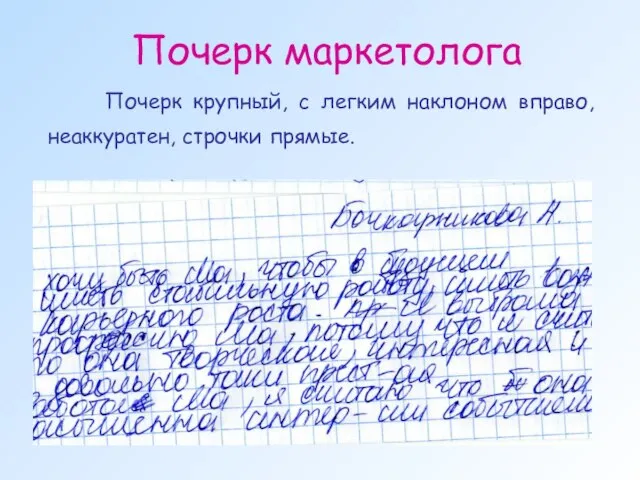 Почерк маркетолога
Почерк крупный, с легким наклоном вправо,
неаккуратен, строчки прямые.
Бочкарникова Н.
хочу быть ма, чтобы в будущем
иметь стабильную работу, иметь
карьерного роста. я выбрала
профессию ма, потому что я счит
то она творческая, интересная и
довольно таки прест-ая
работа ма, я считаю что она
насыщенна интер-ми событиями